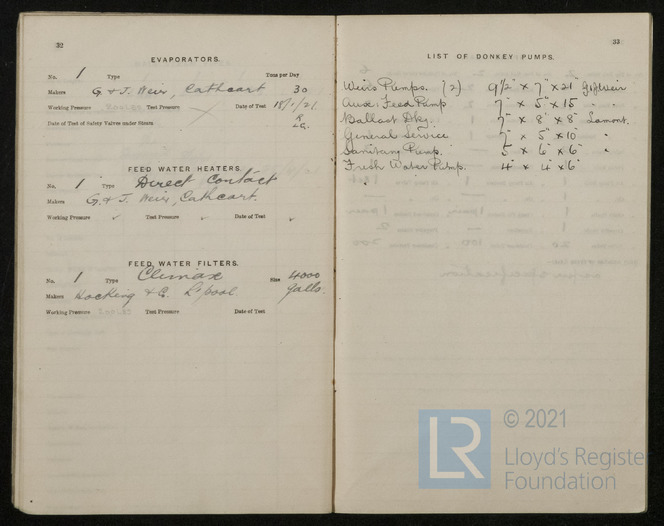 32
EVAPORATORS.
No. 1 Type Tons per Day
Makers G. & J. Weir, Cathcart 30
Working Pressure Test Pressure Date of Test 18/1/21
Date of Test of Safety Valves under Steam
FEED WATER HEATERS.
No. 1 Type Direct Contact
Makers G. & J. Weir, Cathcart.
Working Pressure ✓ Test Pressure ✓ Date of Test ✓
FEED WATER FILTERS.
No. 1 Type Climax Size 4000
Makers Hocking & Co. L'pool. galls.
Working Pressure Test Pressure Date of Test
33
LIST OF DONKEY PUMPS.
Weir's Pumps. (2) 9½" × 7" × 21" G & J Weir
Aux. Feed Pump 7" × 5" × 15 " "
Ballast Dky. 7" × 8" × 8" Lamont.
General Service 7" × 5" × 10" "
Sanitary Pump. 5 × 6" × 6" "
Fresh Water Pump. 4" × 4" × 6"
LR © 2021
Lloyd's Register
Foundation